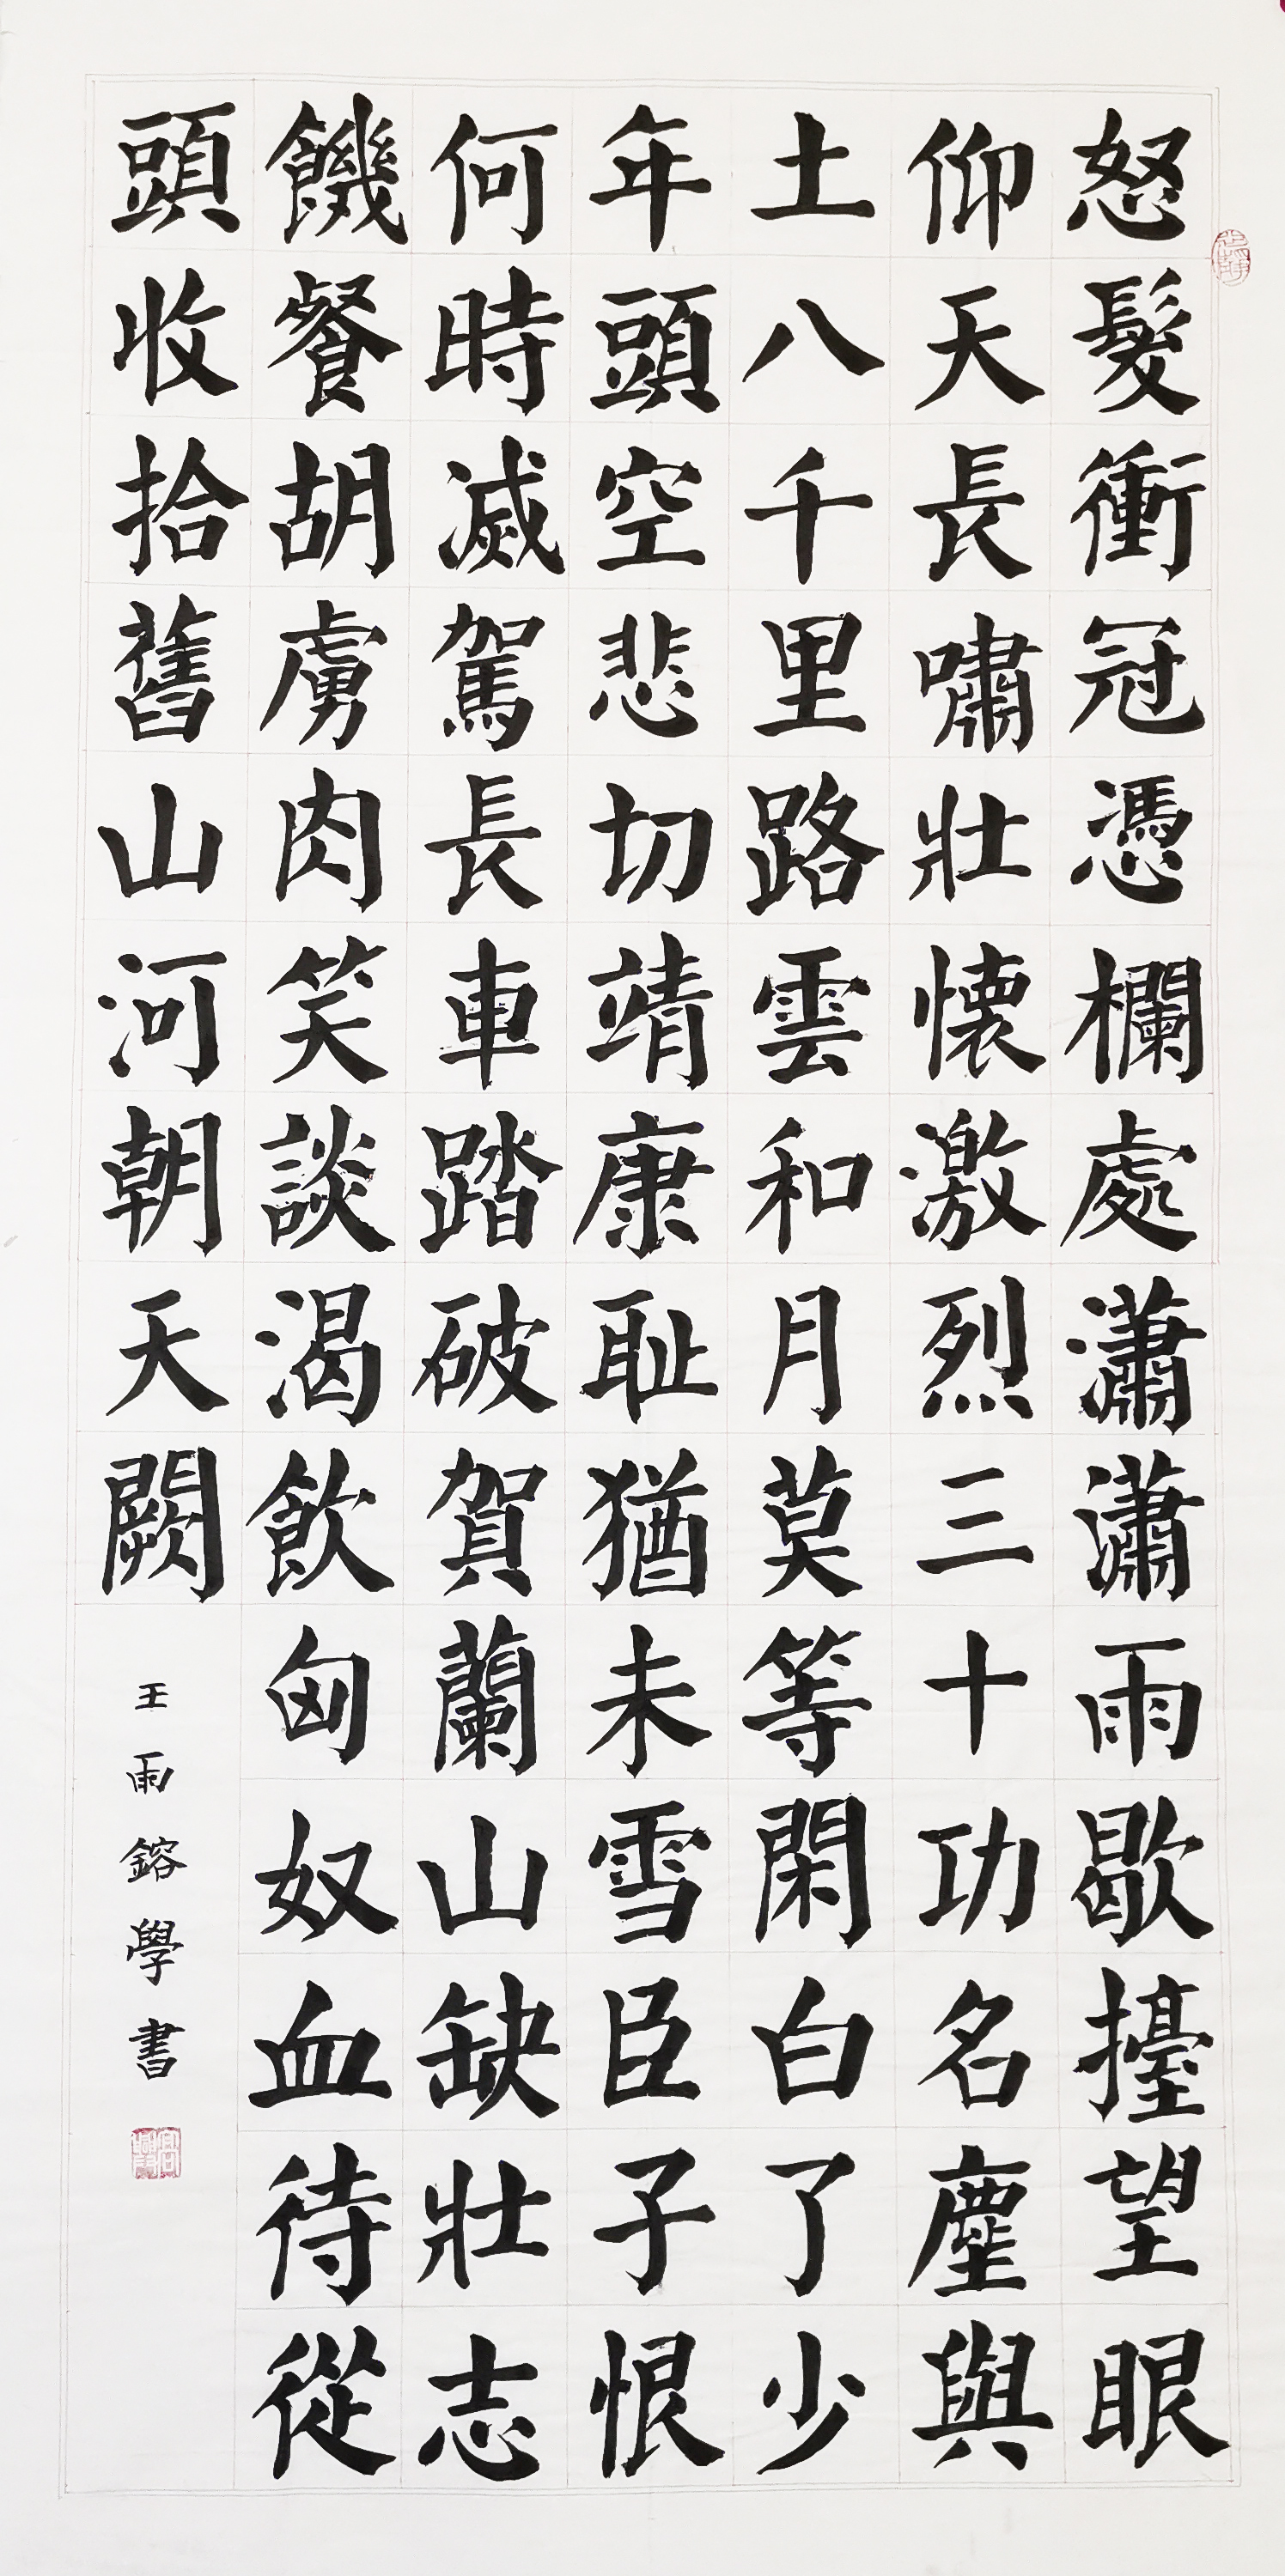 怒髮衝冠憑欄處瀟瀟雨歇擡望眼
仰天長嘯壯懷激烈三十功名塵與
土八千里路雲和月莫等閑白了少
年頭空悲切靖康耻猶未雪臣子恨
何時滅駕長車踏破賀蘭山缺壯志
饑餐胡虜肉笑談渴飲匈奴血待從
頭收拾舊山河朝天闕
王雨鎔學書